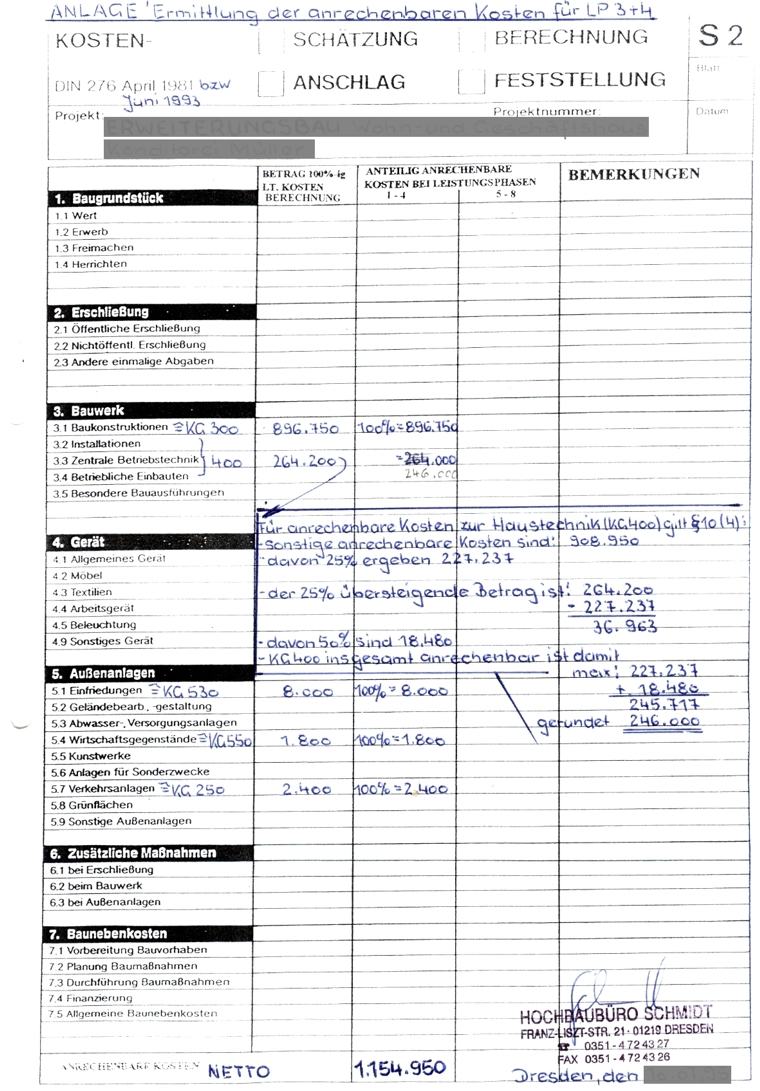 ANLAGE 'Ermittlung der anrechenbaren Kosten für LP 3+4
KOSTEN-
SCHÄTZUNG
BERECHNUNG
S 2
DIN 276 April 1981 bzw
Juni 1993
ANSCHLAG
FESTSTELLUNG
Blatt
Projekt:
Projektnummer:
Datum
BETRAG 100%-ig
LT. KOSTEN
BERECHNUNG
ANTEILIG ANRECHENBARE
KOSTEN BEI LEISTUNGSPHASEN
1 - 4 5 - 8
BEMERKUNGEN
1. Baugrundstück
1.1 Wert
1.2 Erwerb
1.3 Freimachen
1.4 Herrichten
2. Erschließung
2.1 Öffentliche Erschließung
2.2 Nichtöffentl. Erschließung
2.3 Andere einmalige Abgaben
3. Bauwerk
3.1 Baukonstruktionen ≙KG 300 896.750 100%=896.750
3.2 Installationen
3.3 Zentrale Betriebstechnik 400 264.200 =264.000
3.4 Betriebliche Einbauten 246.000
3.5 Besondere Bauausführungen
Für anrechenbare Kosten zur Haustechnik (KG400) gilt §10 (4):
4. Gerät
-sonstige anrechenbare Kosten sind: 908.950
4.1 Allgemeines Gerät
-davon 25% ergeben 227.237
4.2 Möbel
4.3 Textilien
-der 25% übersteigende Betrag ist: 264.200
4.4 Arbeitsgerät
- 227.237
4.5 Beleuchtung
36.963
4.9 Sonstiges Gerät
-davon 50% sind 18.480
-KG400 insgesamt anrechenbar ist damit
5. Außenanlagen
max: 227.237
5.1 Einfriedungen ≙KG 530 8.000 100%=8.000
+ 18.480
5.2 Geländebearb., -gestaltung
245.717
5.3 Abwasser-, Versorgungsanlagen
gerundet 246.000
5.4 Wirtschaftsgegenstände ≙KG550 1.800 100%=1.800
5.5 Kunstwerke
5.6 Anlagen für Sonderzwecke
5.7 Verkehrsanlagen ≙KG 250 2.400 100%=2.400
5.8 Grünflächen
5.9 Sonstige Außenanlagen
6. Zusätzliche Maßnahmen
6.1 bei Erschließung
6.2 beim Bauwerk
6.3 bei Außenanlagen
7. Baunebenkosten
7.1 Vorbereitung Bauvorhaben
7.2 Planung Baumaßnahmen
7.3 Durchführung Baumaßnahmen
7.4 Finanzierung
7.5 Allgemeine Baunebenkosten
HOCHBAUBÜRO SCHMIDT
FRANZ-LISZT-STR. 21 · 01219 DRESDEN
☎ 0351 - 4 72 43 27
FAX 0351 - 4 72 43 26
ANRECHENBARE KOSTEN NETTO 1.154.950
Dresden, den